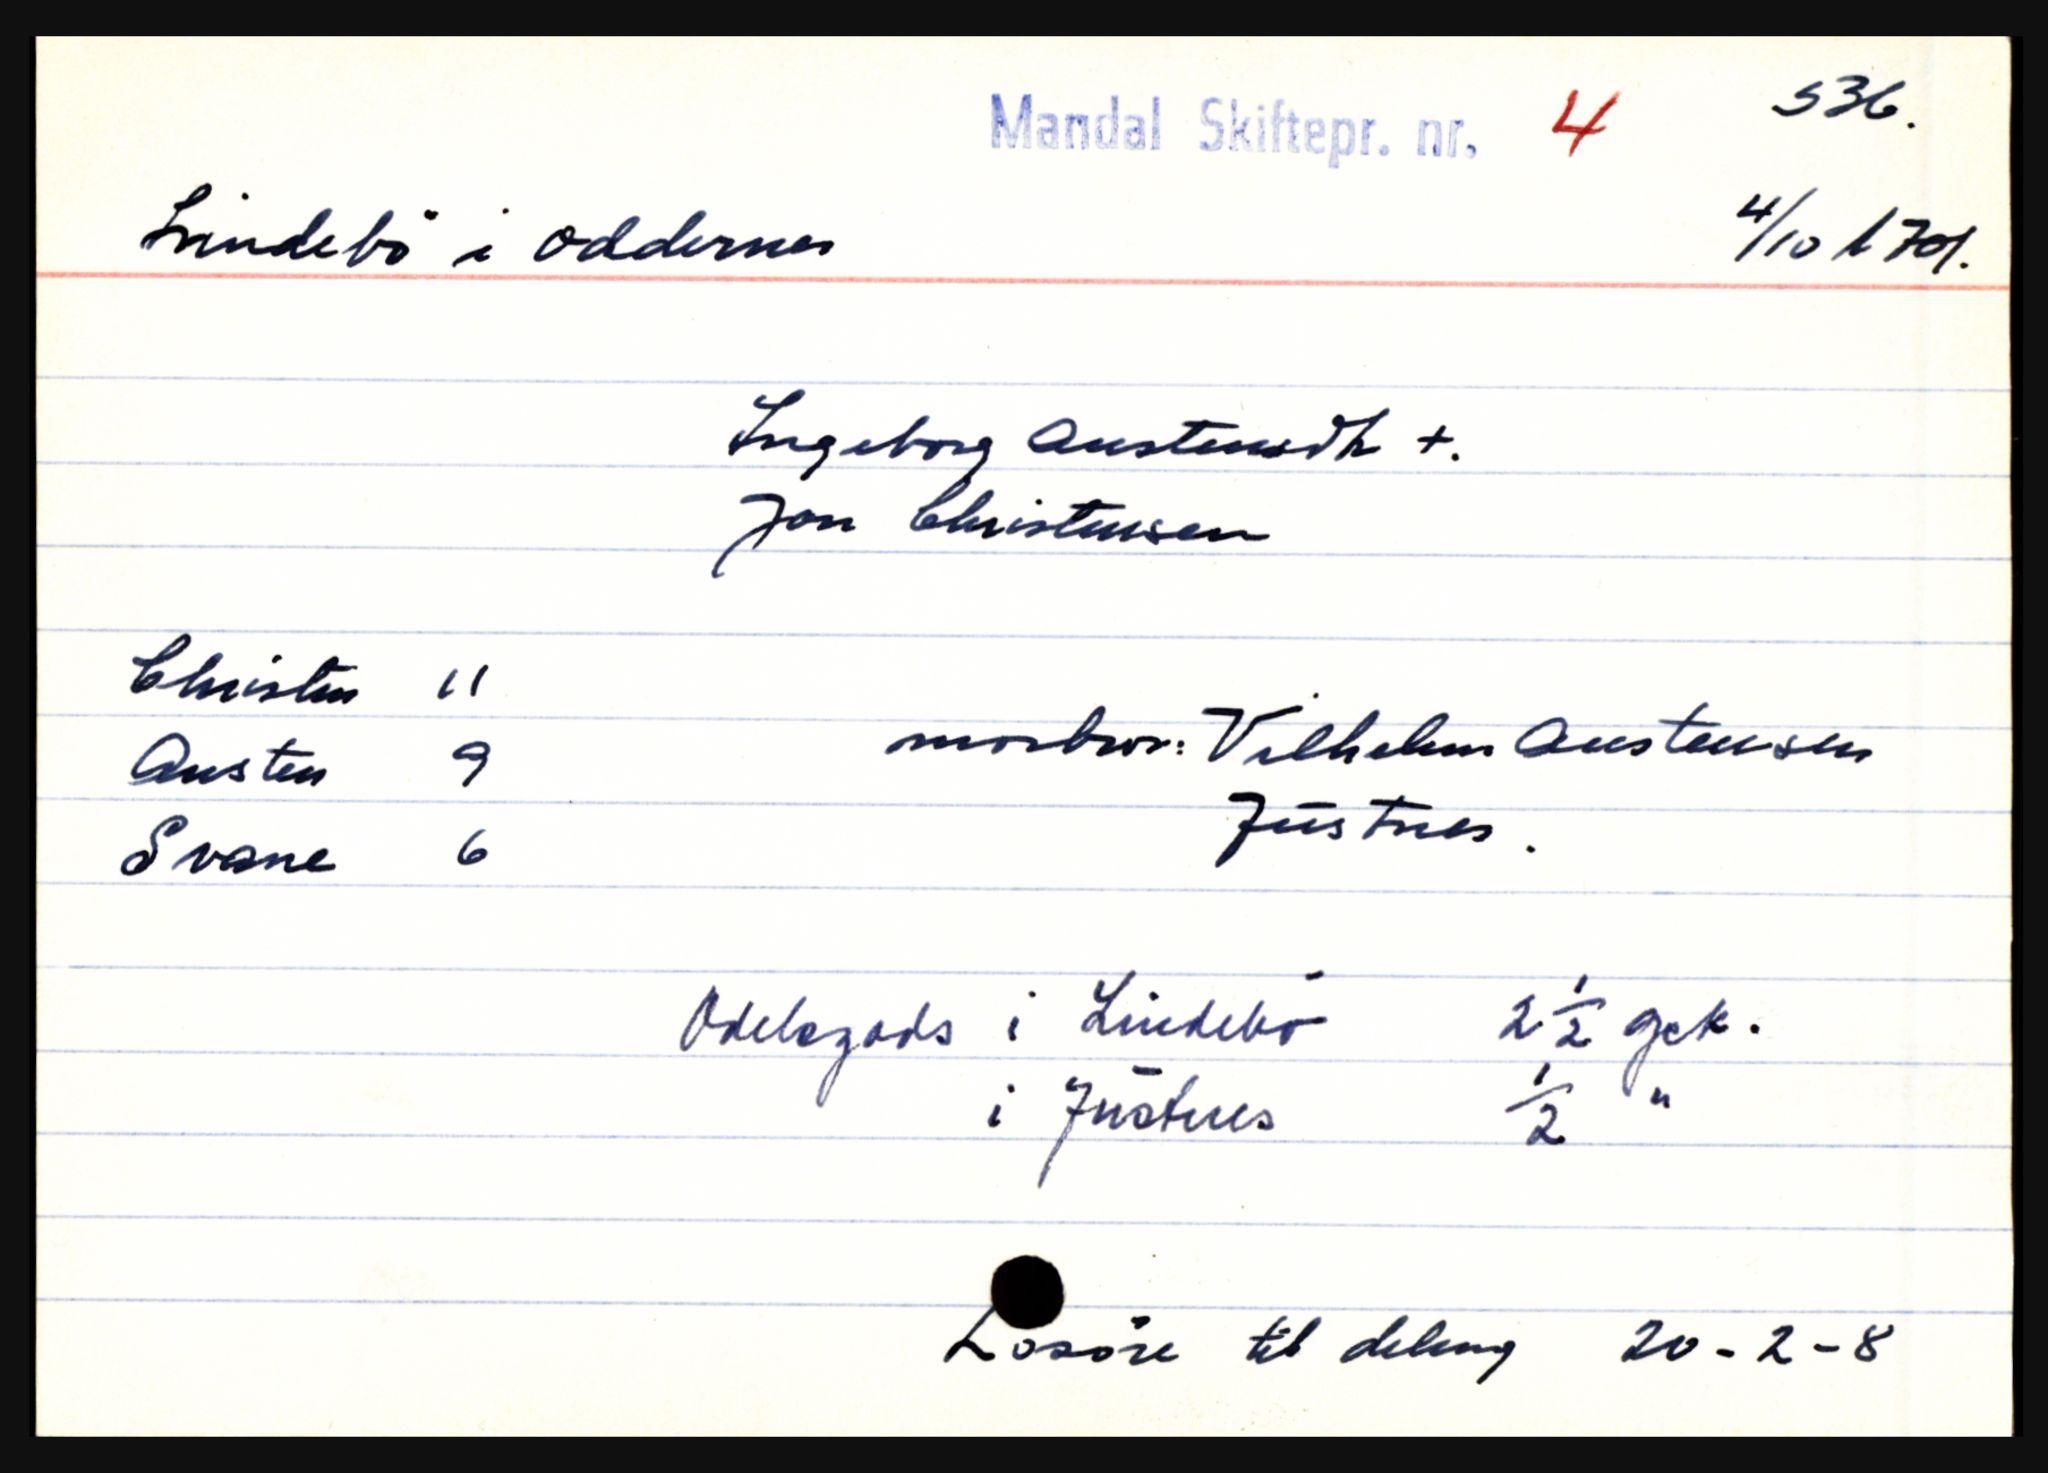 Mandal Skiftepr. nr. 4 536.
Lindebö i Oddernes 4/10 1701.
Ingeborg Austensdh +.
Jon Christensen
Christen 11
Austen 9 morbror: Vilhelm Austensen
Svane 6 Justnes.
Odelsgods i Lindebö 2 1/2 gek.
i Justnes 1/2 "
Losöre til deling 20-2-8